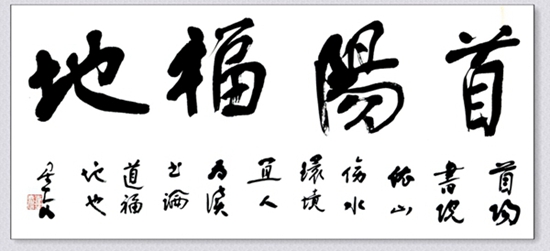 首陽福地
首陽
書院
依山
傍水
環境
宜人
為讀
书論
道福
地也